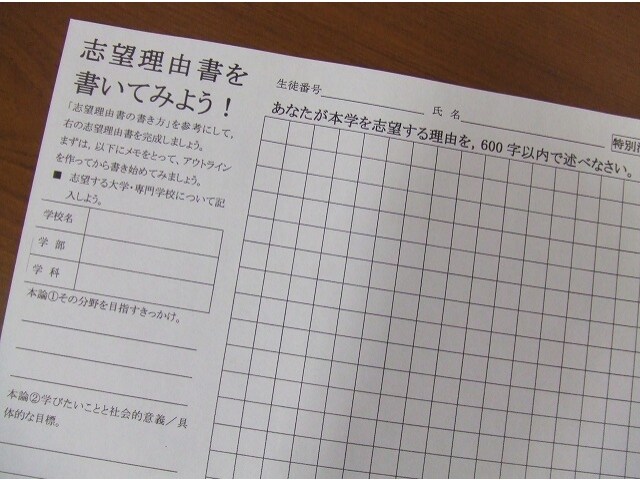 志望理由書を
書いてみよう!
「志望理由書の書き方」を参考にして,
右の志望理由書を完成しましょう。
まずは, 以下にメモをとって, アウトライン
を作ってから書き始めてみましょう。
■ 志望する大学・専門学校について記
入しよう。
学校名
学 部
学 科
本論①その分野を目指すきっかけ。
本論②学びたいことと社会的意義/具
体的な目標。
生徒番号
氏 名
特別
あなたが本学を志望する理由を, 600 字以内で述べなさい。